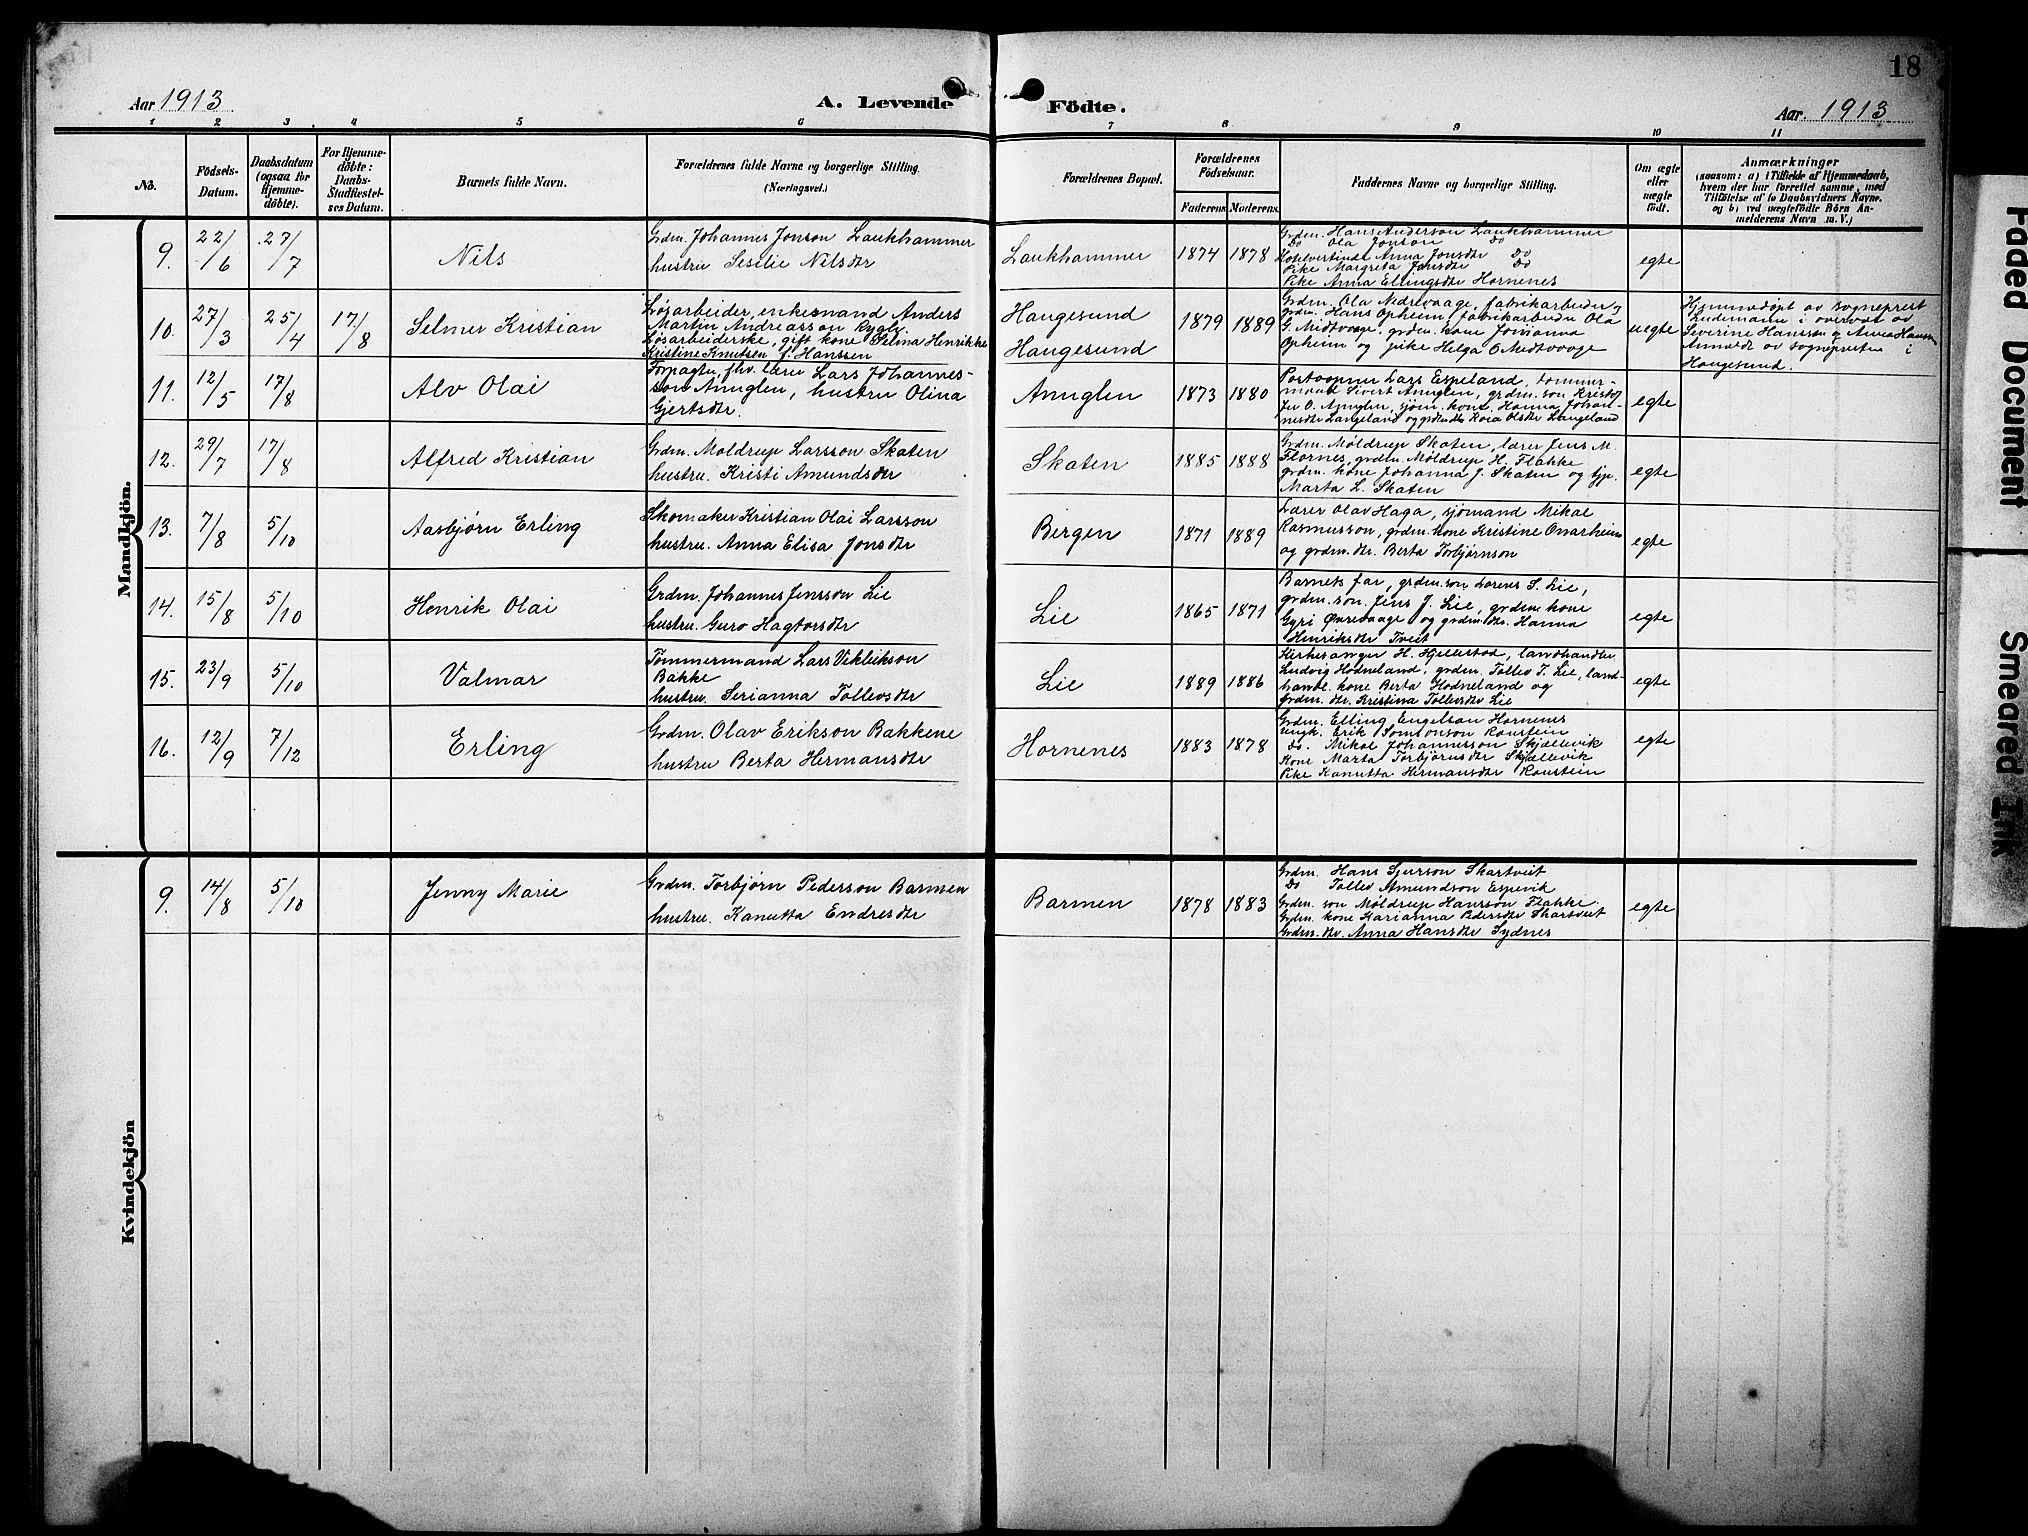 18
Aar 1913
A. Levende Födte.
Aar. 1913
1 2 3 4 5 6 7 8 9 10 11
No.
Födsels-
Datum.
Daabsdatum
(ogsaa for
Hjemme-
döbte).
For Hjemme-
döbte:
Daabs-
Stadfæstel-
ses Datum.
Barnets fulde Navn.
Forældrenes fulde Navne og borgerlige Stilling.
(Næringsvei.)
Forældrenes Bopæl.
Forældrenes
Födselsaar.
Faderens Moderens
Faddernes Navne og borgerlige Stilling.
Om ægte
eller
uægte
födt.
Anmærkninger
(saasom: a) i Tilfælde af Hjemmedaab,
hvem der har forrettet samme, med
Tilföielse af to Daabsvidners Navne.
og b) ved uægtefödte Börn An-
melderens Navn m. V.)
Mandkjön.
9. 22/6 27/7 Nils
Grdm. Johannes Jonson Laukhammer
hustru Sesilie Nilsdtr
Laukhammer 1874 1878
Grdm. Hans Anderson Laukhammer
Do Ola Jonson Do
Hotelvertinde Anna Jonsdtr Do
Pike Margreta Jonsdtr Do
Pike Anna Ellingsdtr Hornenes
egte
10. 27/3 25/4 17/8 Selmer Kristian
Løsarbeider, enkemand Anders
Martin Andreasson Rygly.
Løsarbeiderske, gift kone Selma Henrikke
Kristine Knutsen f. Hanssen
Haugesund
Haugesund
1879 1889
Grdm. Ola Nedrevaage, fabrikarbeider
grdm. Hans Opheim, fabrikarbeider Ola
G. Midtvaage, grdm. kone Jorianna
Opheim og pike Helga O Midtvaage
uegte
Hjemmedøpt av sogneprest
Lindemann i overvær av
Severine Hansson og Anna Hansen
Anmeldt av sognepresten i
Haugesund.
11. 12/5 17/8 Alv Olai
Forpagter, fhv. lærer Lars Johannes-
son Anuglen, hustru Olina
Gjertsdtr.
Anuglen 1873 1880
Postaapner Lars Espeland, tommer-
mand Sivert Anuglen, grdm. son Kristof-
fer O. Anuglen, sjom. kone Hanna Johan-
nesdtr Langeland og grdm dtr Kora Olsdtr Langeland
egte
12. 29/7 17/8 Alfred Kristian
Grdm. Moldrup Larsson Skaten
hustru. Kristi Amundsdtr
Skaten 1885 1888
Grdm. Møldrup Skaten, lærer Jens M.
Flornes, grdm. Møldrup H. Flakke
grdm. kone Johanna J. Skaten og tjp.
Marta L. Skaten
egte
13. 7/8 5/10 Aasbjørn Erling
Skomaker Kristian Olai Larsson
hustru. Anna Elisa Jonsdtr
Bergen 1871 1889
Lærer Olav Haga, sjomand Mikal
Rasmusson, grdm. kone Kristine Onarheim
og grdm. dtr. Berta Torbjørnson
egte
14. 15/8 5/10 Henrik Olai
Grdm. Johannes Jensson Lie
hustru. Guro Hagtorsdtr
Lie 1865 1871
Barnets far, grdm. son Lorens S. Lie,
grdm. son. Jens J. Lie, grdm. kone
Gyri Øvrevaage og grdm. dtr. Hanna
Henriksdtr Tveit
egte
15. 23/9 5/10 Valmar
Tommermand Lars Viklikson
Bakke
hustru. Serianna Tollevsdtr
Lie 1889 1886
Kirkesanger H. Hjellestad, landhandler
Ludvig Hodneland, grdm. Tollev T. Lie, land-
handl. kone Berta Hodneland og
Grdm. dtr. Kristina Tollevsdtr Lie
egte
16. 12/9 7/12 Erling
Grdm. Olav Erikson Bakkene
hustru Berta Hermansdtr
Hornenes 1883 1878
Grdm. Elling Engelson Hornenes
Ungk. Erik Simonson Raustein
Do. Mikal Johannesson Skjællevik
Kone Marta Torbjørnsdtr Skjællevik
Pike Kanutta Hermansdtr Raustein
egte
Kvindekjön
9. 14/8 5/10 Jenny Marie
Grdm. Torbjørn Pederson Barmen
hustru. Kanutta Endresdtr
Barmen 1878 1883
Grdm. Hans Sjurson Skartveit
Do Tollev Amundson Espevik
Grdm. son Møldrup Hansson Flakke
Grdm. kone Karianna Pedersdtr Skartveit
Grdm. dtr. Anna Hansdtr Sydnes
egte
Faded Document
Smeared Ink